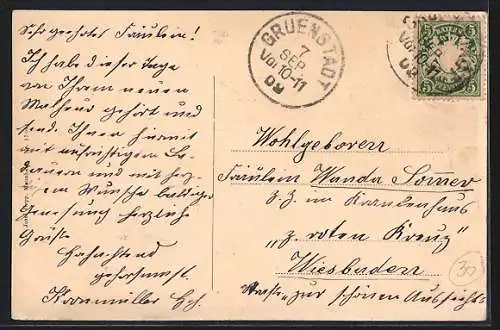 Sehr geehrtes Fräulein!
Ich habe dieser Tage
von Ihrem neuen
Malheur gehört und
send. Ihnen hiermit
mit aufrichtigem Be-
dauern und mit herz.
em Wunsche baldiger
Genesung herzliche
Grüße
Hochachtend
gehorsamst.
Kornmüller
GRUENSTADT
7
SEP
Vor 10-11
09
BAYERN
5
5
Wohlgeboren
Fräulein Wanda
z. Z. im Krankenhaus
„z. roten Kreuz"
Wiesbaden
zur schönen Aussicht
30